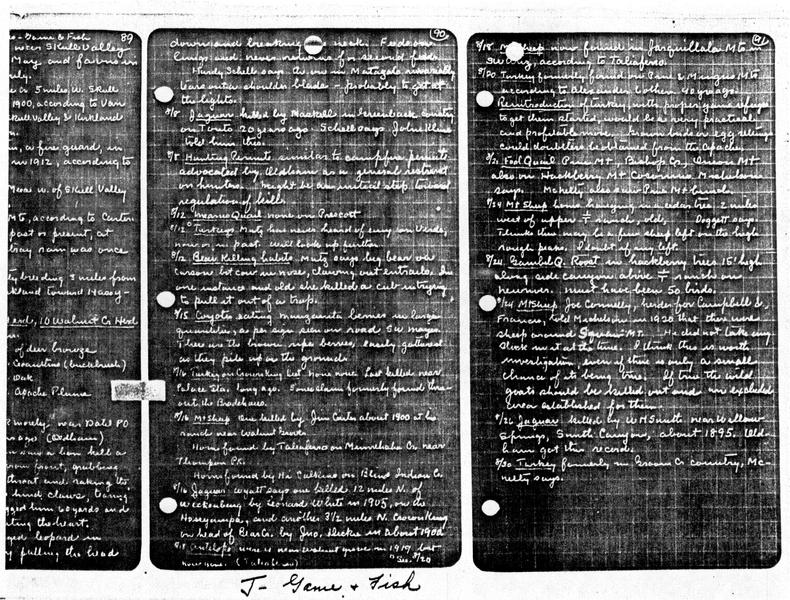 89
-Game & Fish
near Skull Valley
May, and fawns in
5 miles W. Skull
1900, according to Van
Skull Valley & Kirkland
, a fire guard, in
in 1912, according to
W. of Skull Valley
Mts, according to Carter
past or present, at
ram was once
breeding 3 miles from
Kirkland toward
10 Walnut Cr Herd
of deer browse
(buckbrush)
Oak
Apache Plume
near Date PO
ago (Oldham)
saw a lion kill a
front, grabbing
throat and raking the
hind claws, tearing
60 yards and
eating the heart.
leopard in
by pulling the head
90
down and breaking neck. Feeds on
lungs and never returns for second feed.
Hundy Schell says the lions in Matazals invariably
bare outer shoulder blade - probably to get at
the lights.
8/8 Jaguar killed by Haskell in Greenback country
on Tonto 20 years ago. Schell says John Kline
told him this.
8/8 Hunting Permits similar to campfire permits
advocated by Oldham as a general restraint
on hunters. Might be an initial step toward
regulation of kill.
8/12 Mearns Quail none on Prescott
8/12 Turkeys Mutz has never heard of any on Verde,
now or in past. Will look up further
8/12 Bear Killing habits. Mutz says big bear on
cow in nose, clawing out entrails. In
one instance an old she killed a cub in trying
to pull it out of a trap.
8/15 Coyotes eating manzanita berries in large
quantities, as per sign seen on road S.W. Mayer.
These are the brown ripe berries, easily gathered
as they pile up on the ground.
8/16 Turkey on but none now. Last killed near
Palace Sta. long ago. formerly found thru-
out the Bradshaws.
8/16 Mt Sheep One killed by Jim Carter about 1900 at his
ranch near Walnut Grove.
Horns found by Taliaferro on Minnehaha Cr. near
Thompson Pk.
Horn found by Hi Calkins on Blind Indian Cr.
8/16 Jaguar. Wyatt says one killed 12 miles N. of
Wickenburg by Leonard White in 1905, on the
Hassayampa, and another 3½ miles N. Crown King
on head of Bear Cr. by Jno. Hickie in about 1900
8/18 Antelope were in near Walnut Grove in 1917 but
now gone. (Taliaferro)
9/20
91
8/18 Mt Sheep now found in Jarquillala Mts in
SW Ariz, according to Taliaferro.
8/20 Turkey formerly found on Pine & Mingus Mts.
according to Alexander & others 40 yrs ago.
Reintroduction of turkey, with proper game refuges
to get them started, would be a very practicable
and profitable move. Grown birds or egg settings
could doubtless be obtained from the Apache.
8/21 Fool Quail Pine Mt, Bishop Cr, Union Mt
also on Hackberry Mt Coconino. Machelson
says. McNelty also saw Pine Mt bunch
8/24 Mt Sheep horns hanging in cedar tree 2 miles
west of upper ranch, old, Doggett says.
Thinks there may be a few sheep left on the high
rough peaks. I doubt if any left.
8/24. Gambel Q. Roost in hackberry tree 15' high
along side canyon above ranch on
new river. Must have been 50 birds.
8/24 Mt Sheep Joe Connelly, herder for Campbell &
Francis, told Machelson in 1920 that there were
sheep around Squaw Mt. He did not take any
stock in it at the time. I think this is worth
investigation even if there is only a small
chance of its being true. If true the wild
goats should be killed out and an excluded
area established for them.
8/26 Jaguar killed by W H Smith near Willow
Springs, Smith Canyon, about 1895. Old-
ham got this record.
8/30 Turkey formerly in Brown Cr country, Mc-
Nelty says.
J- Game & Fish